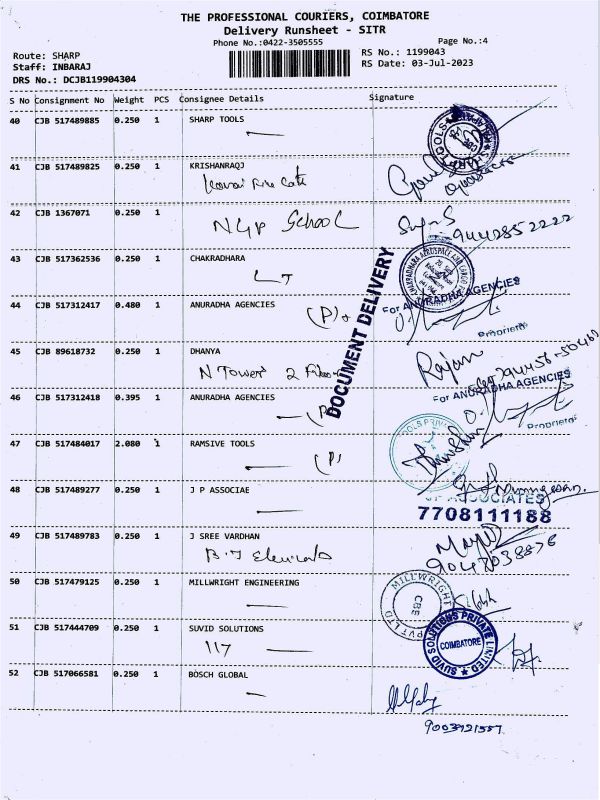 THE PROFESSIONAL COURIERS, COIMBATORE
Delivery Runsheet - SITR
Phone No.:0422-3505555 Page No.:4
Route: SHARP RS No.: 1199043
Staff: INBARAJ RS Date: 03-Jul-2023
DRS No.: DCJB119904304
S No Consignment No Weight PCS Consignee Details Signature
40 CJB 517489885 0.250 1 SHARP TOOLS
41 CJB 517489825 0.250 1 KRISHANRAQJ
42 CJB 1367071 0.250 1
NGP School
9442852222
43 CJB 517362536 0.250 1 CHAKRADHARA
LT
DOCUMENT DELIVERY
44 CJB 517312417 0.480 1 ANURADHA AGENCIES
For ANURADHA AGENCIES
(P)
Proprietor
45 CJB 89618732 0.250 1 DHANYA
Rajan
N Tower 2
46 CJB 517312418 0.395 1 ANURADHA AGENCIES
For ANURADHA AGENCIES
Proprietor
47 CJB 517484017 2.080 1 RAMSIVE TOOLS
(P)
48 CJB 517489277 0.250 1 J P ASSOCIAE
JP ASSOCIATES
7708111188
49 CJB 517489783 0.250 1 J SREE VARDHAN
9047038876
50 CJB 517479125 0.250 1 MILLWRIGHT ENGINEERING
MILLWRIGHT
CBE
PVT LTD
51 CJB 517444709 0.250 1 SUVID SOLUTIONS
117
SUVID SOLUTIONS PRIVATE LIMITED
COIMBATORE
52 CJB 517066581 0.250 1 BOSCH GLOBAL